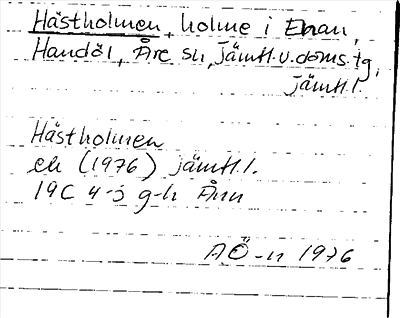 Hästholmen, holme i Enan,
Handöl, Åre sn, Jämtl. v. doms. tg,
Jämtl. l.
Hästholmen
ek (1976) Jämtl. l.
19C 4-5 g-h Ånn
AÖ-n 1976